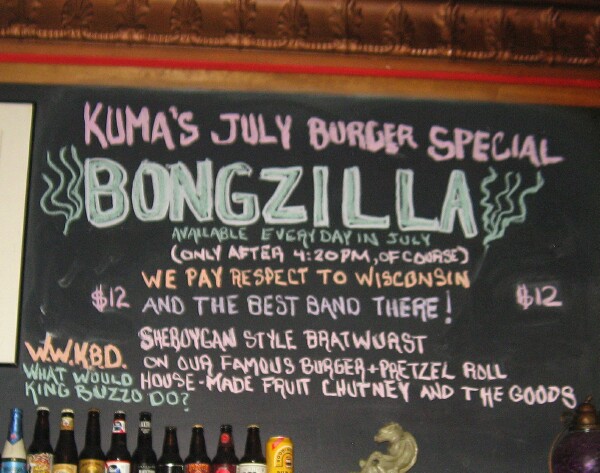 KUMA'S JULY BURGER SPECIAL
BONGZILLA
AVAILABLE EVERYDAY IN JULY
(ONLY AFTER 4:20PM, OF COURSE)
WE PAY RESPECT TO WISCONSIN
$12 AND THE BEST BAND THERE! $12
SHEBOYGAN STYLE BRATWURST
ON OUR FAMOUS BURGER + PRETZEL ROLL
HOUSE-MADE FRUIT CHUTNEY AND THE GOODS
W.W.K.B.D.
WHAT WOULD
KING BUZZO DO?